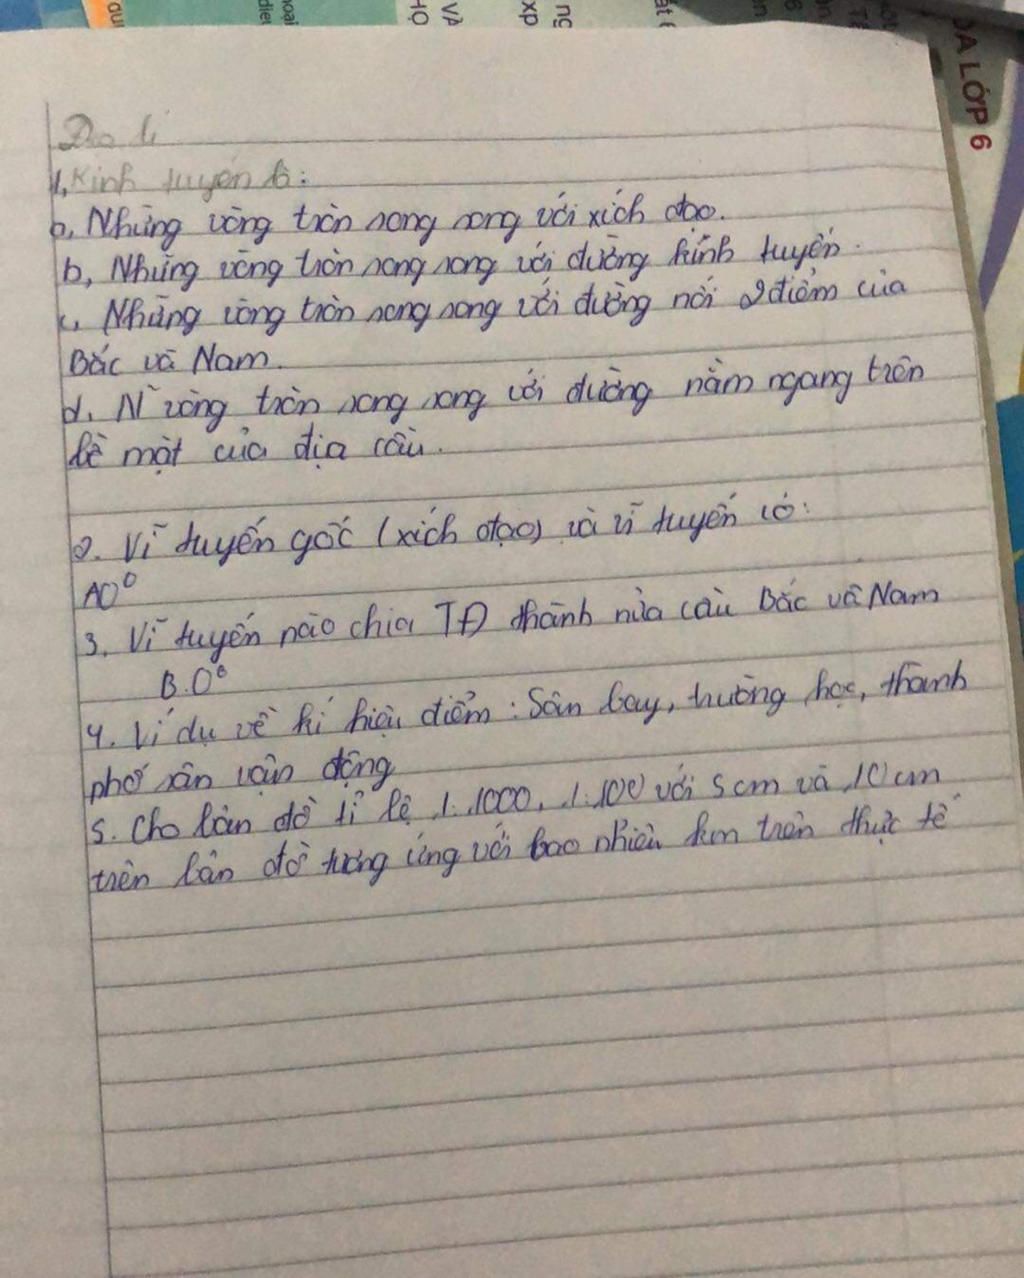 ĐỊA LỚP 6
Địa lí
1, Kinh tuyến là:
a, Những vòng tròn song song với xích đạo.
b, Những vòng tròn song song với đường kính tuyến.
c, Những vòng tròn song song với đường nối 2 điểm của
Bắc và Nam.
d, N vòng tròn song song với đường nằm ngang trên
bề mặt của địa cầu.
2. Vĩ tuyến gốc (xích đạo) là vĩ tuyến có:
A 0°
3, Vĩ tuyến nào chia TĐ thành nửa cầu Bắc và Nam
B. 0°
4. Ví dụ về kí hiệu điểm: Sân bay, trường học, thành
phố sân vận động
5. Cho bản đồ tỉ lệ 1:1000, 1:100 với 5 cm và 10 cm
trên bản đồ tương ứng với bao nhiêu km trên thực tế